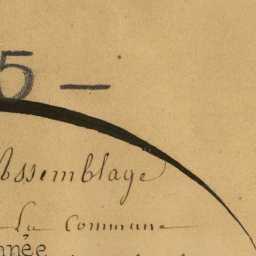 5 —
Assemblage
La Commune
nnée